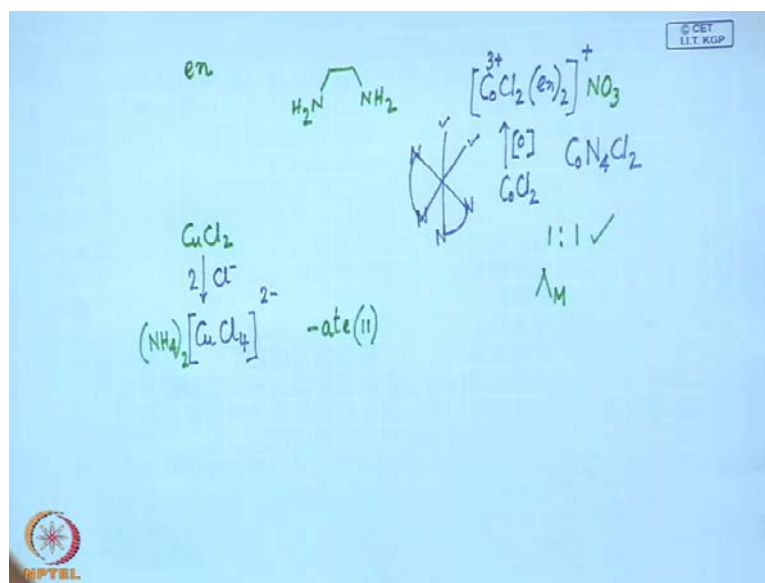 © CET
I.I.T. KGP
en
H₂N NH₂
[Co³⁺Cl₂(en)₂]⁺ NO₃
↑[O] CoN₄Cl₂
CoCl₂
N N N N ✓ ✓
1:1 ✓
Λ_M
CuCl₂
2↓Cl⁻
(NH₄)₂[CuCl₄]²⁻ -ate(II)
NPTEL